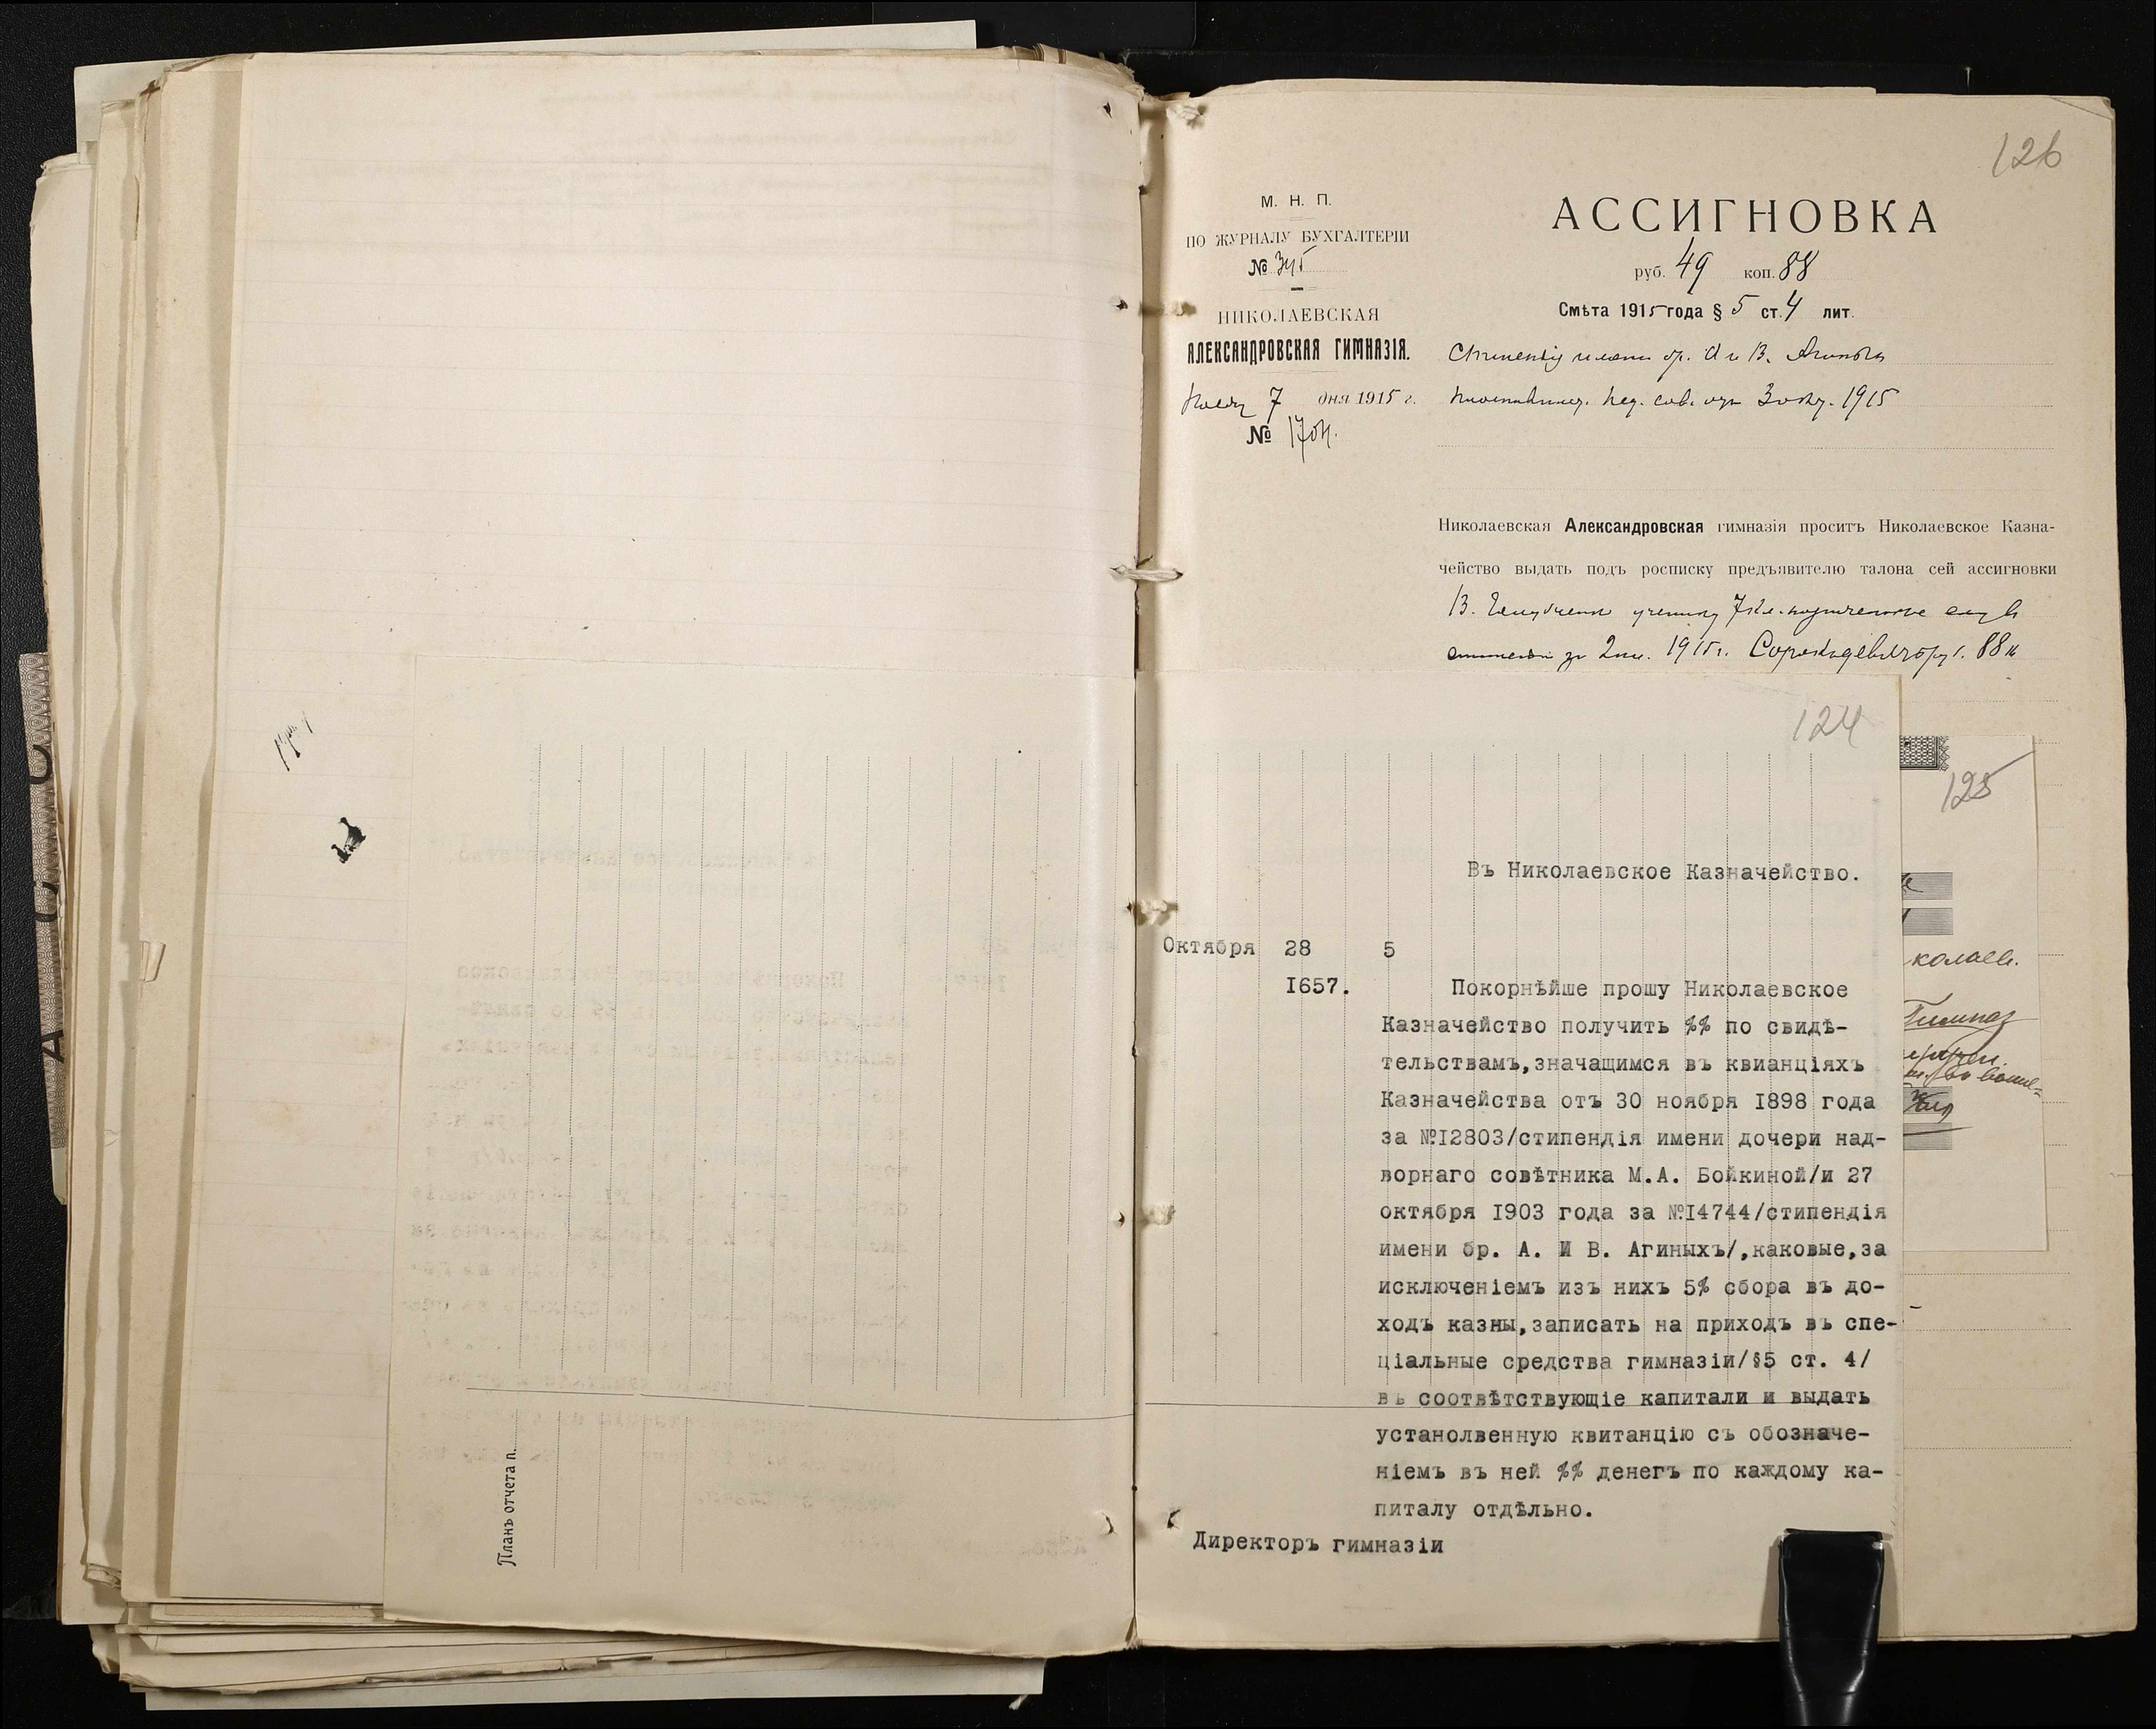 126
М. Н. П.
ПО ЖУРНАЛУ БУХГАЛТЕРІИ
№ 345
НИКОЛАЕВСКАЯ
АЛЕКСАНДРОВСКАЯ ГИМНАЗІЯ.
7 дня 1915 г.
№
АССИГНОВКА
руб. 49 коп. 88
Смѣта 1915 года § 5 ст. 4 лит.
имени бр. А и В.
1915
Николаевская Александровская гимназія проситъ Николаевское Казна-
чейство выдать подъ росписку предъявителю талона сей ассигновки
В. ученику 7 кл.
1915 г. 88 к
124
Въ Николаевское Казначейство.
Октября 28 5
I657.
Покорнѣйше прошу Николаевское
Казначейство получить %% по свидѣ-
тельствамъ,значащимся въ квианціяхъ
Казначейства отъ 30 ноября I898 года
за №I2803/стипендія имени дочери над-
ворнаго совѣтника М.А. Бойкиной/и 27
октября I903 года за №I4744/стипендія
имени бр. А. И В. Агиныхъ/,каковые,за
исключеніемъ изъ нихъ 5% сбора въ до-
ходъ казны,записать на приходъ въ спе-
ціальные средства гимназіи/§5 ст. 4/
въ соотвѣтствующіе капитали и выдать
устанолвенную квитанцію съ обозначе-
ніемъ въ ней %% денегъ по каждому ка-
питалу отдѣльно.
Директоръ гимназіи
125
колаев.
Планъ отчета п.